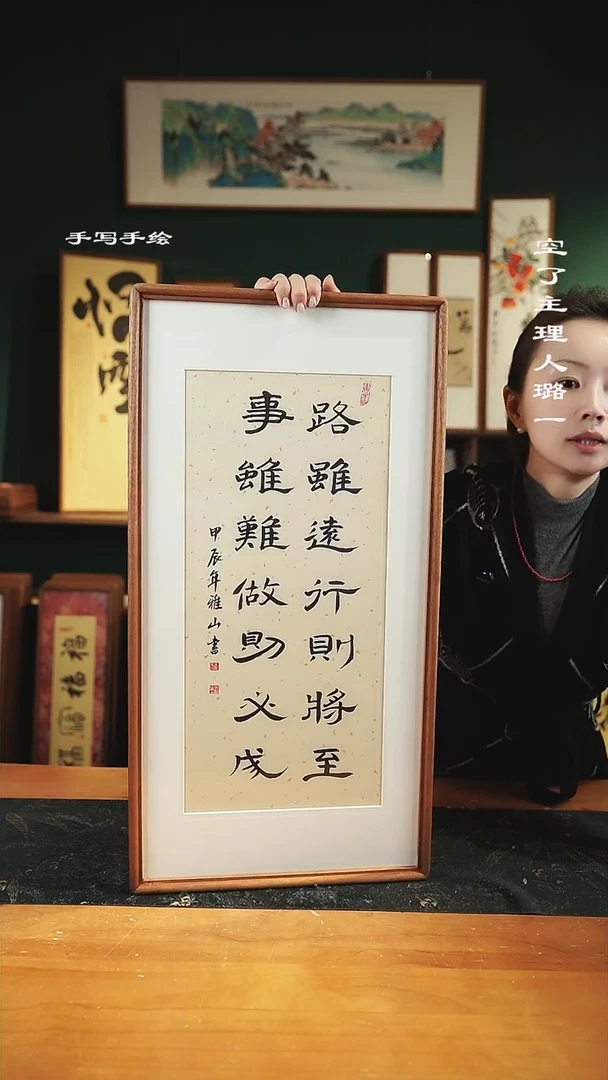 手写手绘
空了主理人璐一
路雖遠行則將至
事雖難做則必成
甲辰年雅山書
福福福福